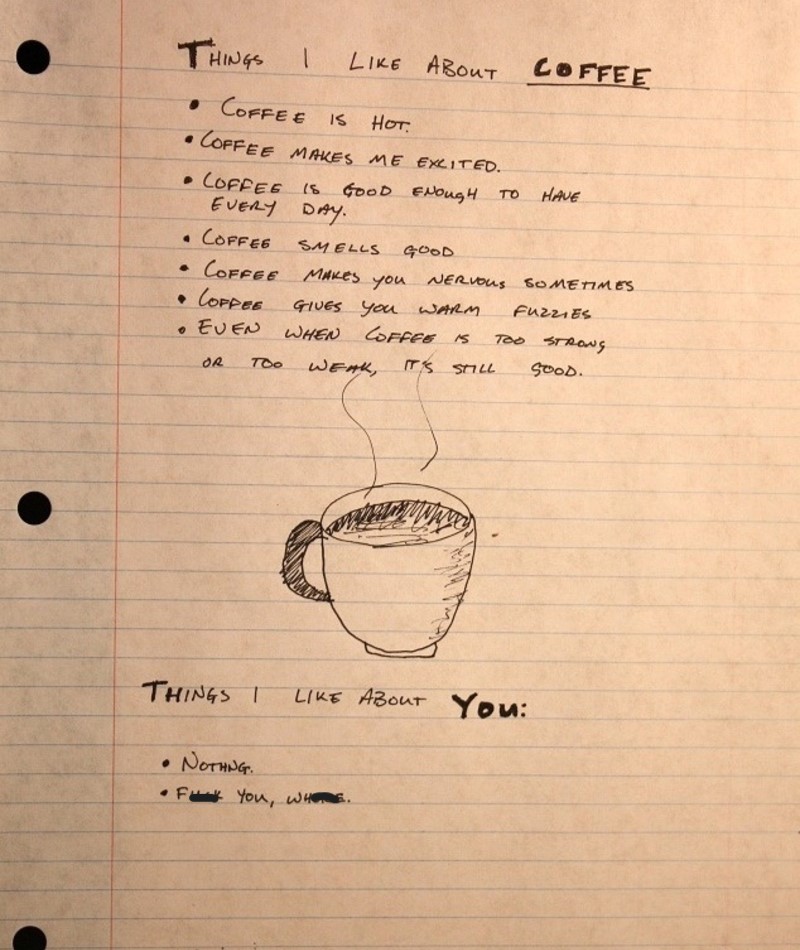 THINGS I LIKE ABOUT COFFEE
• COFFEE IS HOT.
• COFFEE MAKES ME EXCITED.
• COFFEE IS GOOD ENOUGH TO HAVE
EVERY DAY.
• COFFEE SMELLS GOOD
• COFFEE MAKES YOU NERVOUS SOMETIMES
• COFFEE GIVES YOU WARM FUZZIES
• EVEN WHEN COFFEE IS TOO STRONG
OR TOO WEAK, IT'S STILL GOOD.
THINGS I LIKE ABOUT YOU:
• NOTHNG.
• YOU,